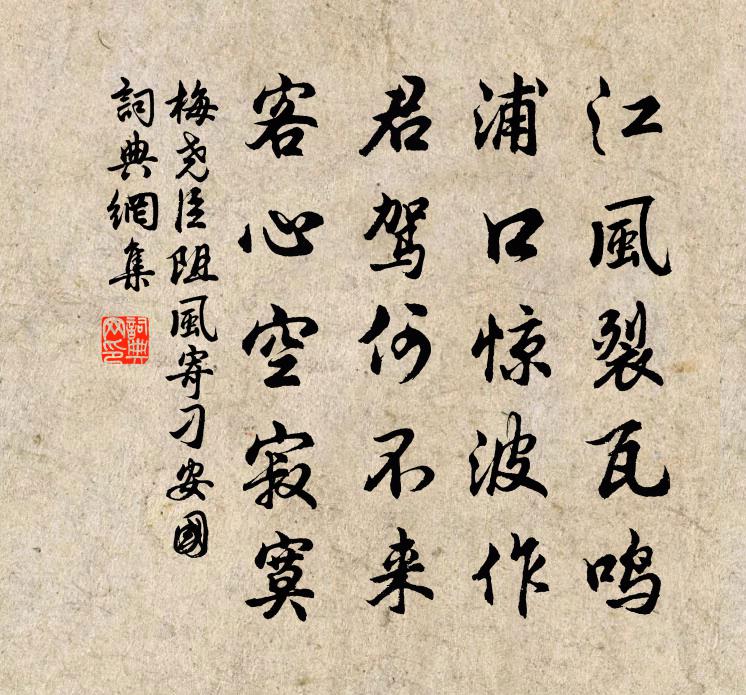 江風裂瓦鳴
浦口惊波作
君駕何不来
客心空寂寞
梅尭臣阻風寄刁安國
詞典網集
詞典网印